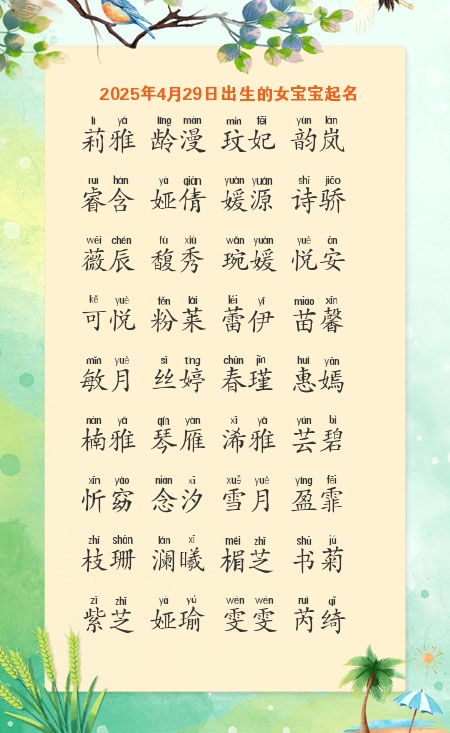 2025年4月29日出生的女宝宝起名
lì yǎ líng màn mín fēi yùn lán
莉雅 龄漫 玟妃 韵岚
ruì hán yà qiàn yuàn yuán shī jiāo
睿含 娅倩 媛源 诗骄
wēi chén fù xiù wǎn yuàn yuè ān
薇辰 馥秀 琬媛 悦安
kě yuè fěn lái lěi yī miáo xīn
可悦 粉莱 蕾伊 苗馨
mǐn yuè sī tíng chūn jǐn huì yān
敏月 丝婷 春瑾 惠嫣
nán yǎ qín yàn xī yǎ yún bì
楠雅 琴雁 浠雅 芸碧
xīn yǎo niàn xī xuě yuè yíng fēi
忻窈 念汐 雪月 盈霏
zhī shān lán xī méi zhī shū jú
枝珊 澜曦 楣芝 书菊
zǐ zhī yà yú wén wén ruì qǐ
紫芝 娅瑜 雯雯 芮绮